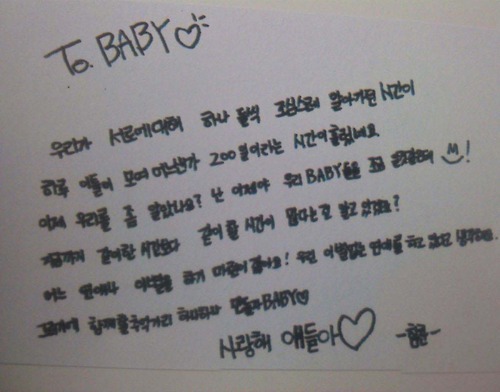 To. BABY♡
우리가 서로에대해 하나 둘씩 조심스레 알아가던 시간이
하루 이틀이 모여 어느샌가 200일이라는 시간이 흘렀네요
이제 우리를 좀 알았나요? 난 이제야 우리 BABY들을 조금 !
지금까지 같이한 시간보다 같이 할 시간이 많다는 것 알고 있죠?
어느 연애나 이별을 하기 마련이 ! 우린 이별없는 연애를 하고 있다고 생각해요.
함께할 추억거리 하나하나 BABY♡
사랑해 얘들아♡